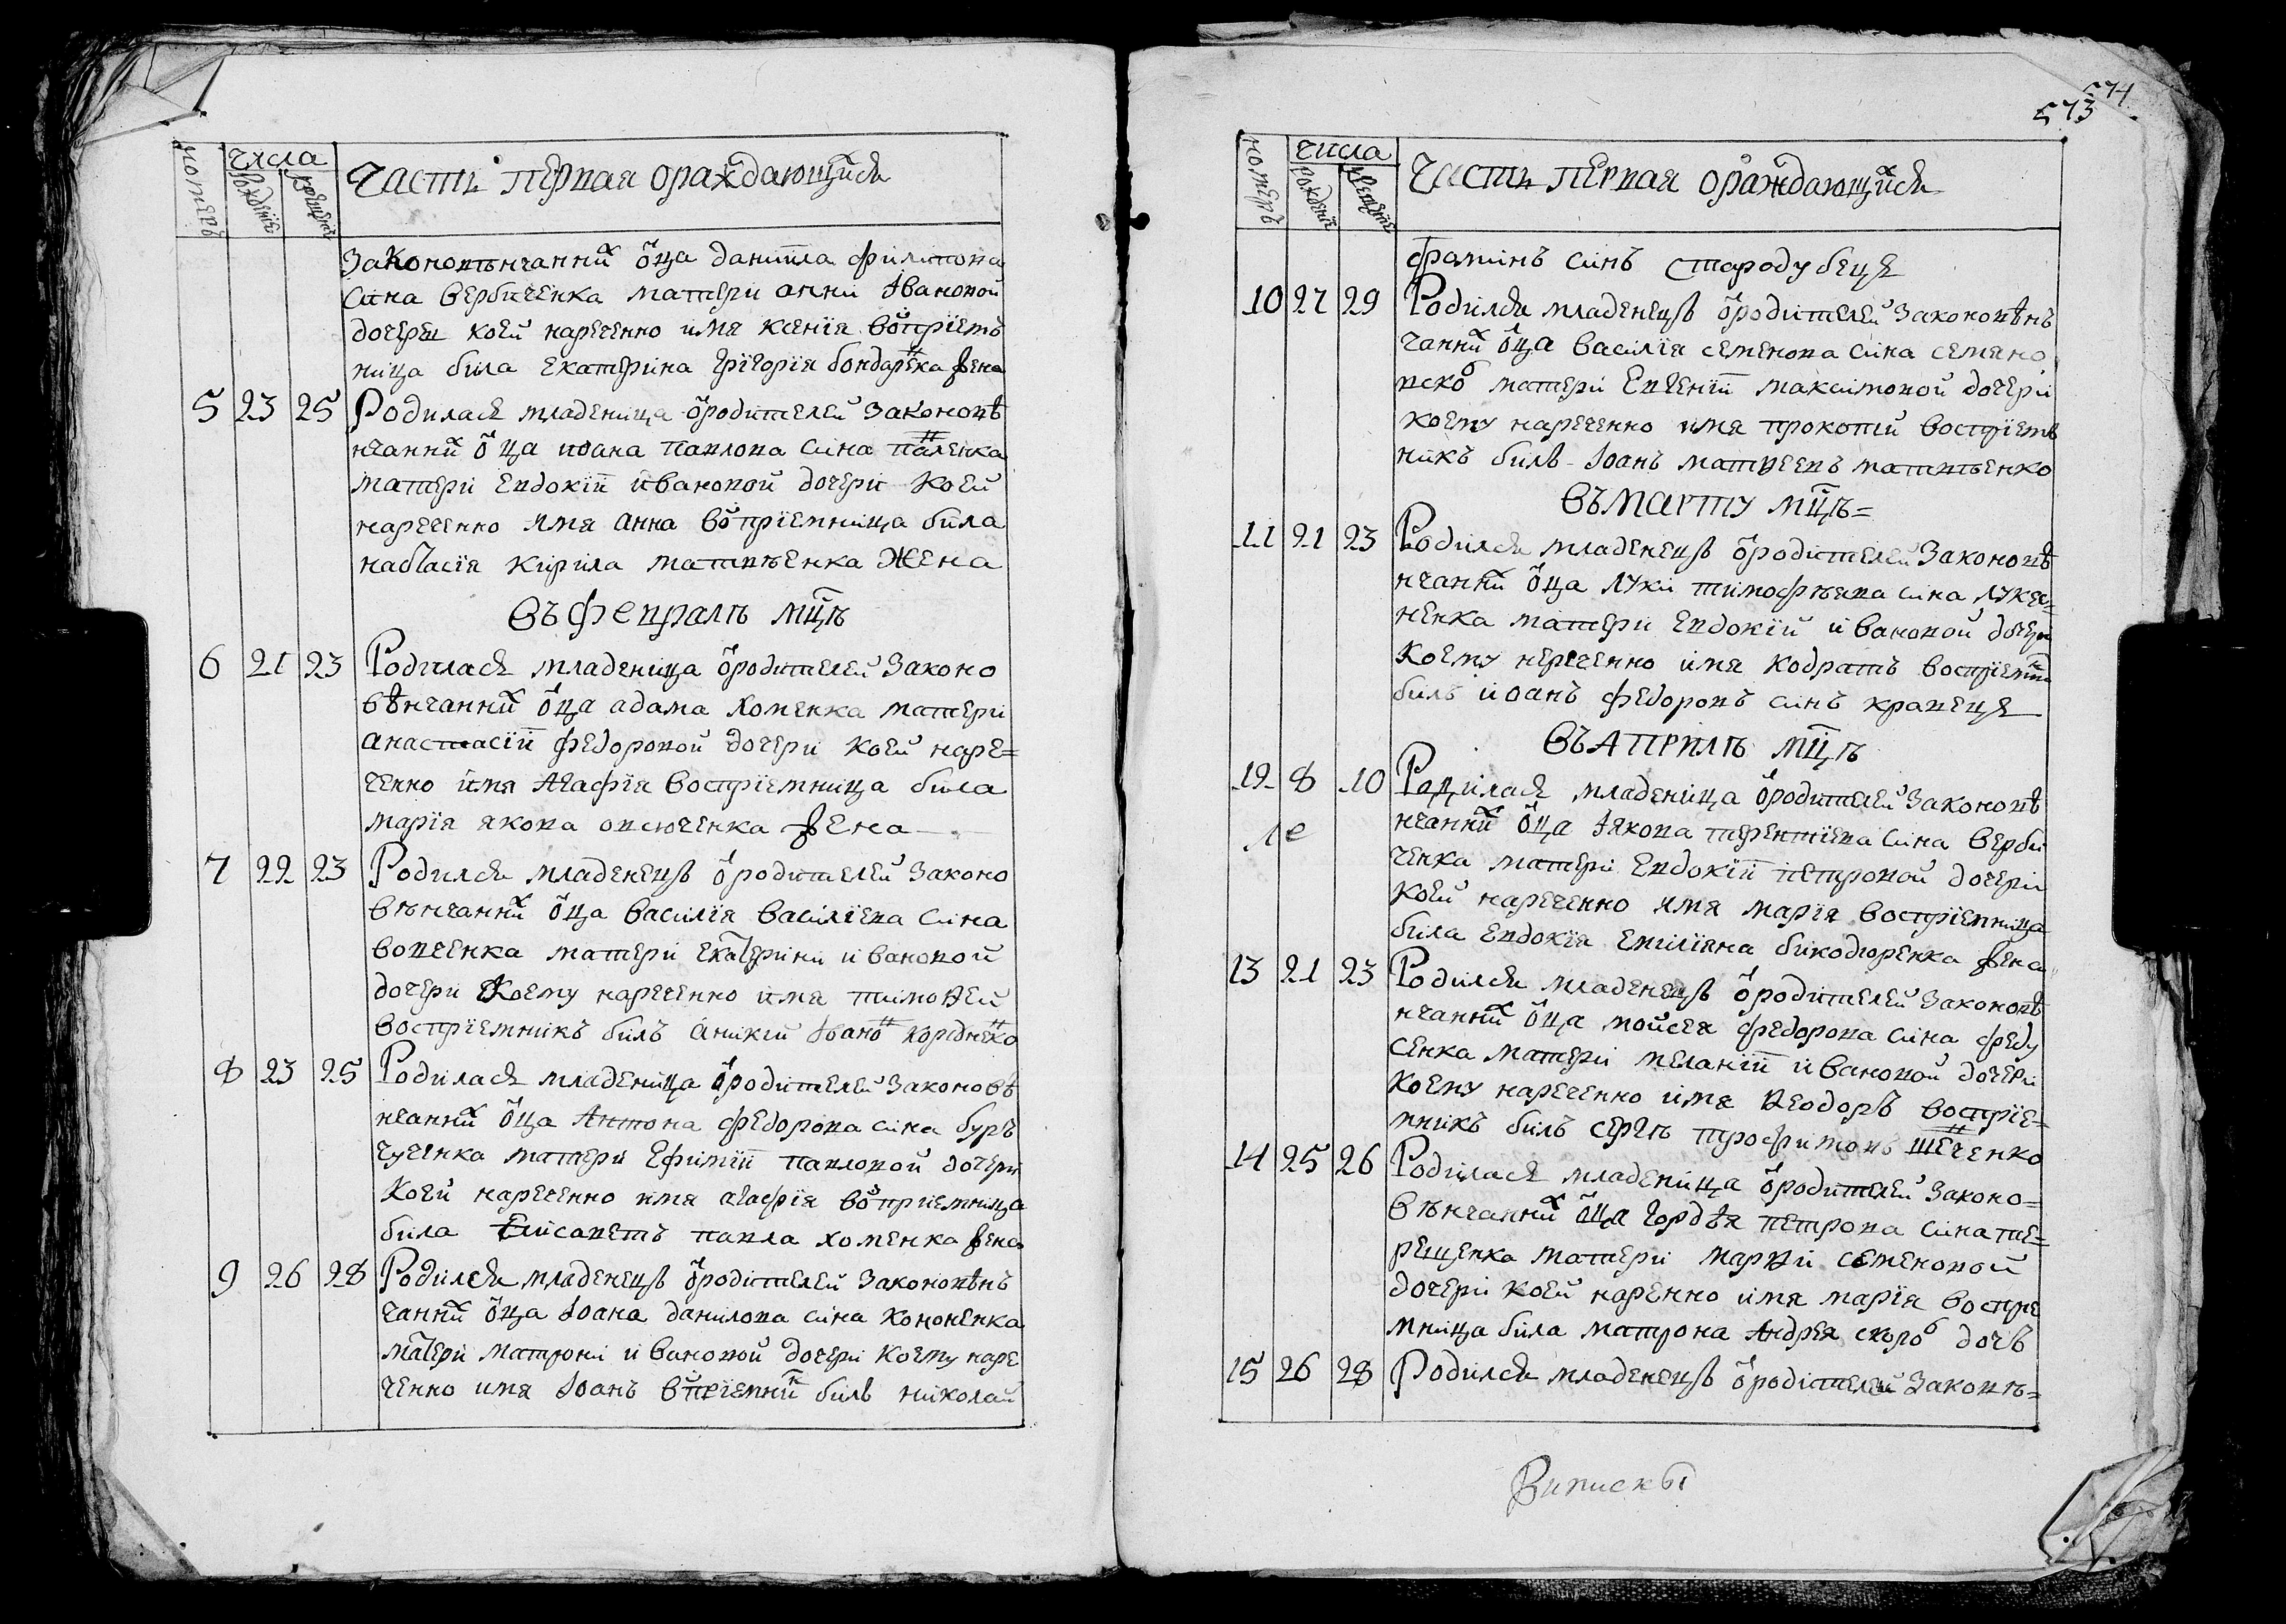 номеръ
числа
рожденїе
крещенїе
Часть первая ораждающихся
законовѣнчанних ѿ оца данїила филїпова
сина вербиченка матери анни Івановой
дочери коей нареченно имя ксенїя воспрїемъ
ница била екатерина григорїя бондаренка жена
5 23 25 Родилася младеница ѿ родителей законовѣ
нчанних оца иоана павлова сина павленка
матери евдокїи ивановой дочери коей
нареченно имя анна воспрїемница била
настасїя кирила матвѣенка жена
въ февралѣ мцѣ
6 21 23 Родилася младеница ѿ родителей законо
вѣнчанних оца адама хоменка матери
анастасїи федоровой дочери коей наре=
ченно имя агафїя воспрїемница била
марїя якова овсюченка жена
7 22 23 Родился младенецъ ѿ родителей законо
вѣнчанних оца василїя василїева сина
вовченка матери екатерини ивановой
дочери коему нареченно имя тимоѳей
воспрїемникъ билъ аникїй Іванов
8 23 25 Родилася младеница ѿ родителей законовѣ
нчанних оца Антона федорова сина буръ
чученка матери Ефимїи павловой дочери
коей нареченно имя агафїя восприемница
била Елисаветъ павла хоменка жена
9 26 28 Родился младенецъ ѿ родителей законовѣнъ
чанних оца Іоана данилова сина кононенка
матери матрони ивановой дочери коему наре
ченно имя Іоанъ воспрїемник билъ николай
574
573
номеръ
числа
рожденїе
крещенїе
Часть первая ораждающихся
фоминъ синъ стародубеця
10 27 29 Родился младенецъ ѿ родителей законовѣнъ
чанних оца василїя семенова сина семяно
вского матери Евгенїи максимовой дочери
коему нареченно имя прокопїй воспрїемъ
никъ билъ Іоанъ матвеевъ матвѣенко
въ марту мцѣ=
11 21 23 Родился младенецъ ѿ родителей законовѣ
нчанних оца луки тимофѣева сина лукя=
ненка матери евдокїи ивановой дочери
коему нереченно имя кодратъ воспрїемник
билъ иоанъ федоровъ синъ кравеця
въ Априлѣ мцѣ
12 8 10 Родилася младеница ѿ родителей законовѣ
нчанних оца Іякова терентїева сина верби
ченка матери Евдокїи петровой дочери
коей нареченно имя марїя воспрїемница
била евдокїя емилїяна бикодюренка жена
13 21 23 Родился младенецъ ѿ родителей законовѣ
нчанних оца мойсея федорова сина феду
сенка матери меланїи ивановой дочери
коему нареченно имя ѳеодоръ воспрїе=
мникъ билъ сергѣ трофимовъ
14 25 26 Родилася младеница ѿ родителей законо=
вѣнчанних оца гордѣя петрова сина те=
рещенка матери марѳи семеновой
дочери коей наренно имя марїя воспре
мница била матрона Андрея дочъ
15 26 28 Родился младенецъ ѿ родителей законвѣ=
Випискы